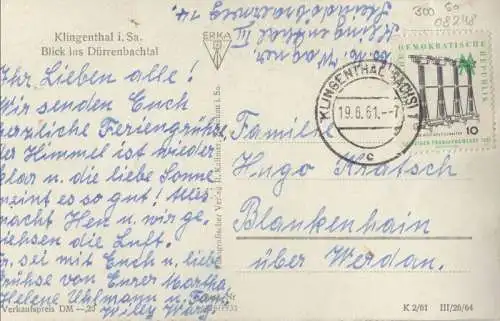 Klingenthal i. Sa.
Blick ins Dürrenbachtal
ERKA
300 So
08248
Ihr Lieben alle!
Wir senden Euch
herzliche Feriengrüße
der Himmel ist wieder
klar u. die liebe Sonne
meint es so gut! Uns
macht Hen u. wir ge-
die Luft.
sei mit Euch u. liebe
Grüße von Eurer Martha,
Helene Uhlmann u. Fam.
Willy
DEMOKRATISCHE
REPUBLIK
10
KLINGENTHAL (SACHS) 1
19.6.61.--7
c
Familie
Hugo Kratsch
Blankenhain
über Werdau.
Verkaufspreis DM —,20
K 2/61 III/26/64